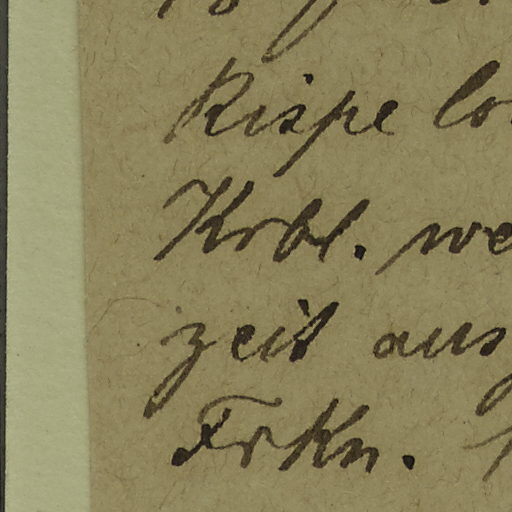 Rispe lo
Krbl. we
zeit aus
FrKn.